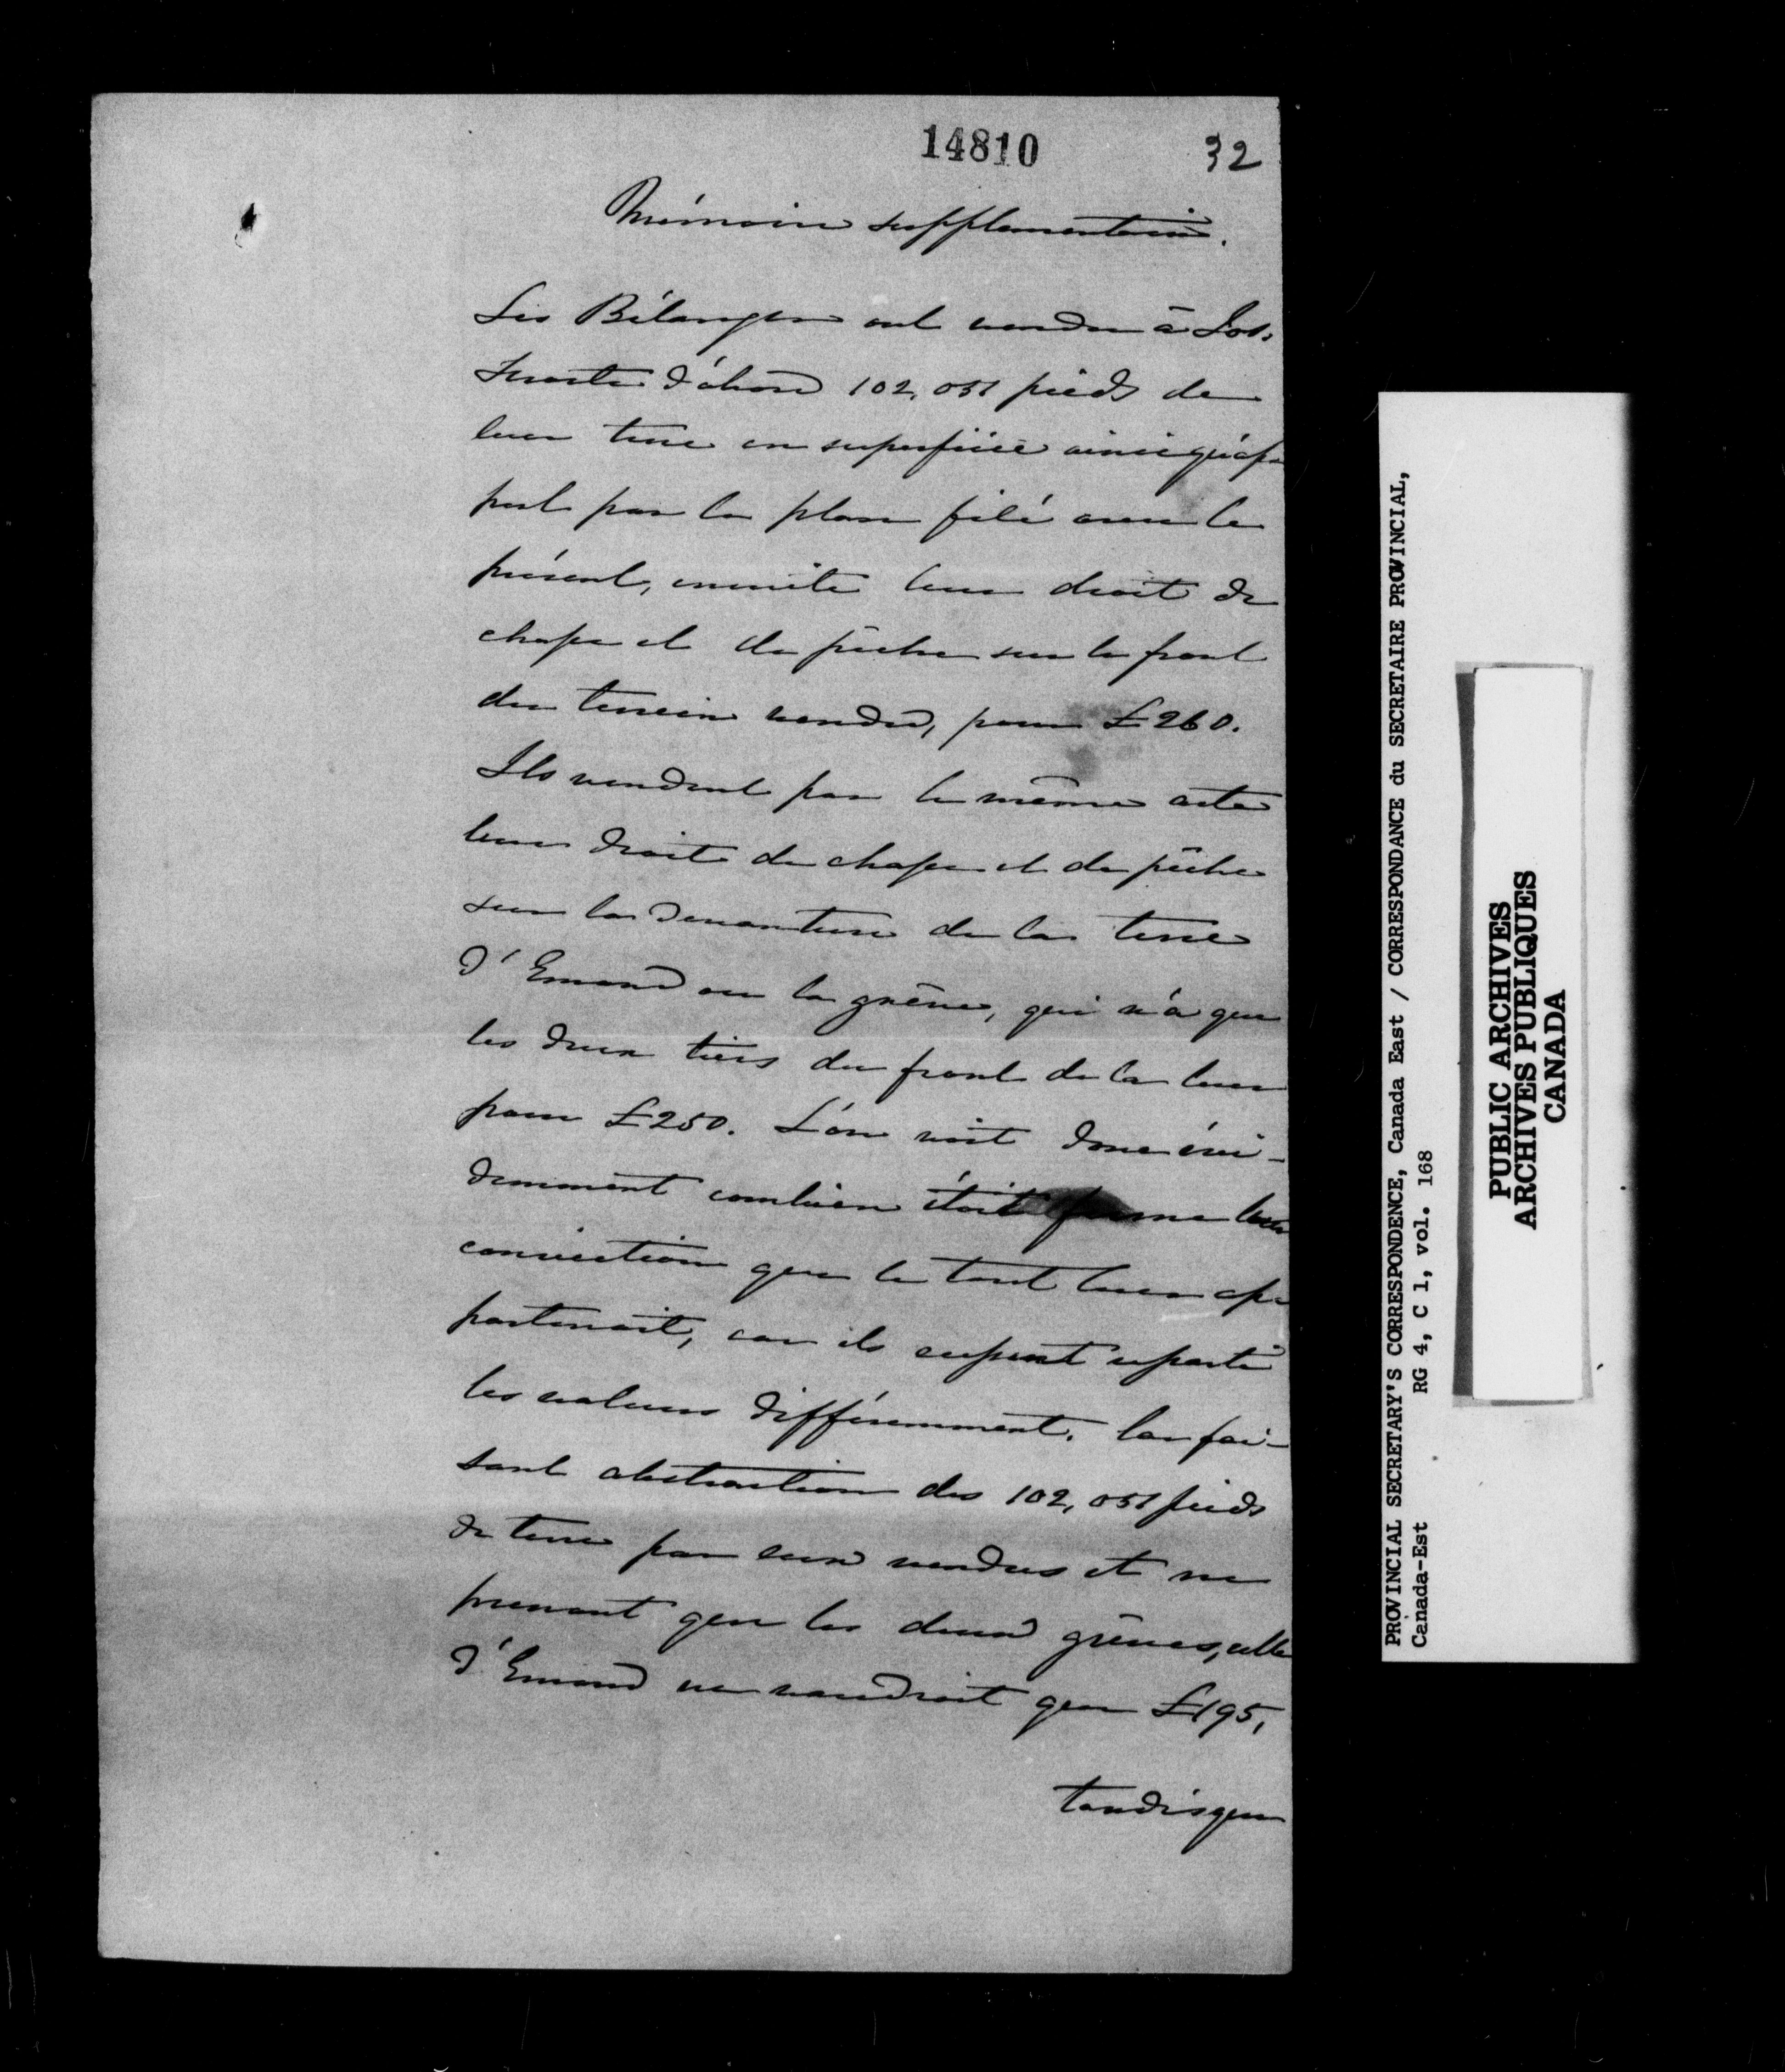 14810 32
Mémoire supplementaire.
Les Bélanger ont vendu à Jos.
d'abord 102,051 pieds de
leur terre en superficie ainsi qu'ap
pert par le plan filé avec le
présent, ensuite leur droit de
chasse et de pêche sur le front
du terrein vendu, pour £260.
Ils vendent par le même acte
leur droit de chasse et de pêche
sur la devanture de la terre
d'Emond ou la grêve, qui n'a que
les deux tiers du front de la leur
pour £250. L'on voit donc évi-
demment combien étoit ferme leur
conviction que le tout leur ap
partenait, car ils eussent reparti
les valeurs différemment. la fai-
sant abstraction des 102,051 pieds
de terre par eux vendus et ne
prenant que les deux grêves, celle
d'Emond ne vaudroit que £195,
tandisque
PROVINCIAL SECRETARY'S CORRESPONDENCE, Canada East / CORRESPONDANCE du SECRETAIRE PROVINCIAL,
Canada-Est RG 4, C 1, vol. 168
PUBLIC ARCHIVES
ARCHIVES PUBLIQUES
CANADA